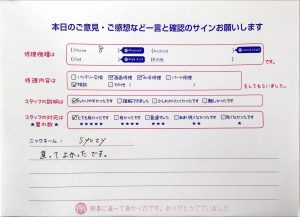 本日のご意見・ご感想など一言と確認のサインお願いします
修理機種は iPhone 8 Android です。
iPad
修理内容は バッテリー交換 画面修理 水没修理 パーツ修理
相談 その他 をしてもらいました。
スタッフの説明は わかりやすかったです 理解できました 少しわかりにくかったです 難しかったです
スタッフの対応は とても良かったです 良かったです 普通でした 良くなかったです
★星の数★ ★★★★★ ★★★★ ★★★ ★★ ★
ニックネーム: syozy
直ってよかったです。
無事に直って良かったです。ありがとうございました